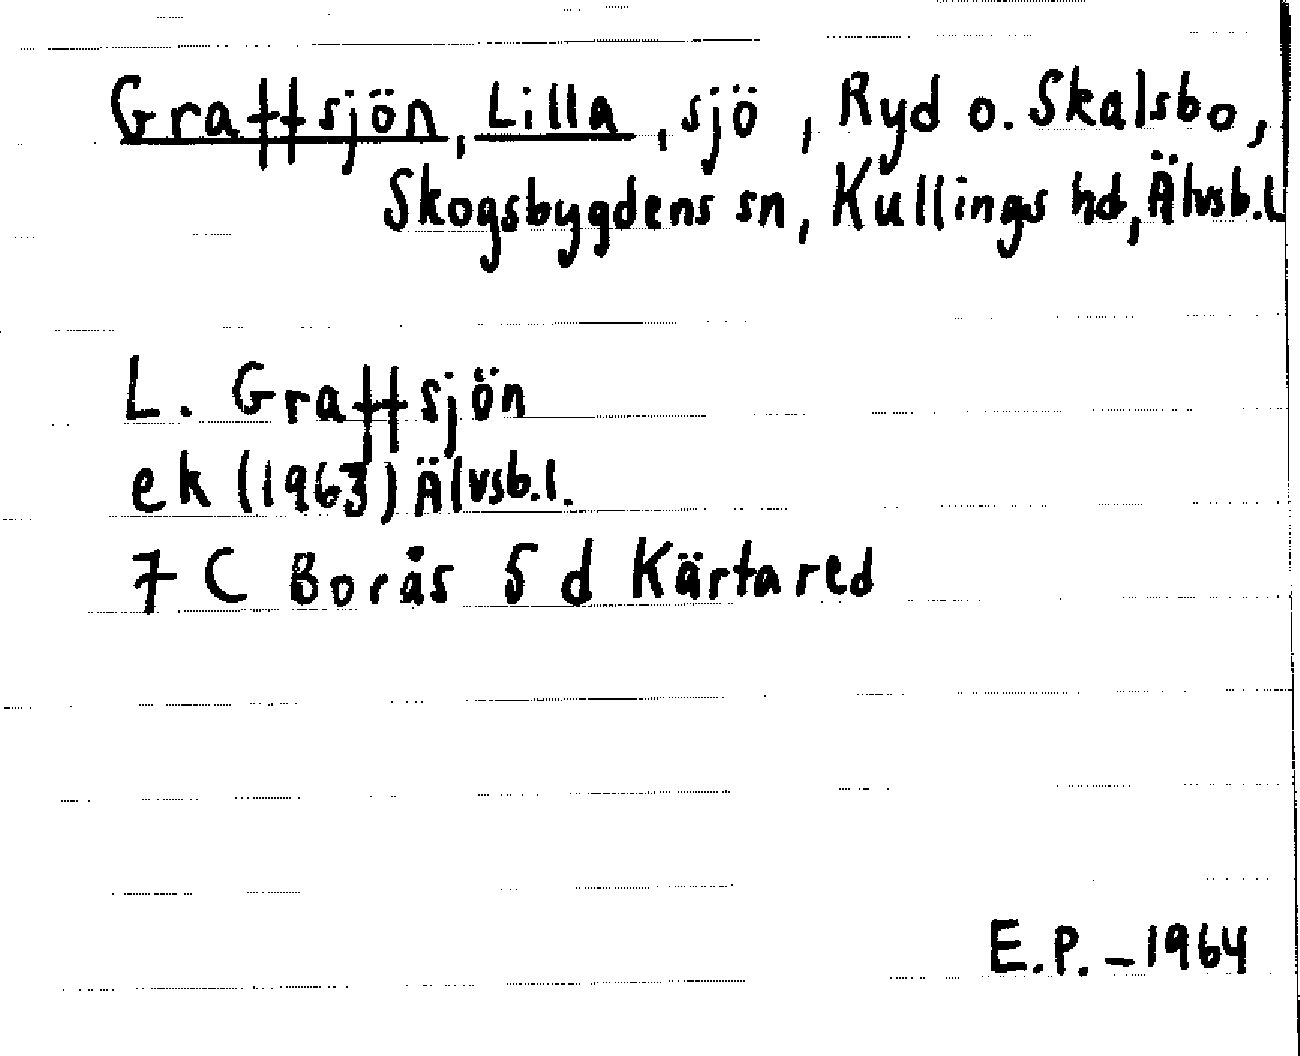 Graffsjön, Lilla, sjö, Ryd o. Skalsbo,
Skogsbygdens sn, Kullings hd, Älvsb.l
L. Graffsjön
ek (1963) Älvsb.l.
7 C Borås 5 d Kärtared
E.P. - 1964